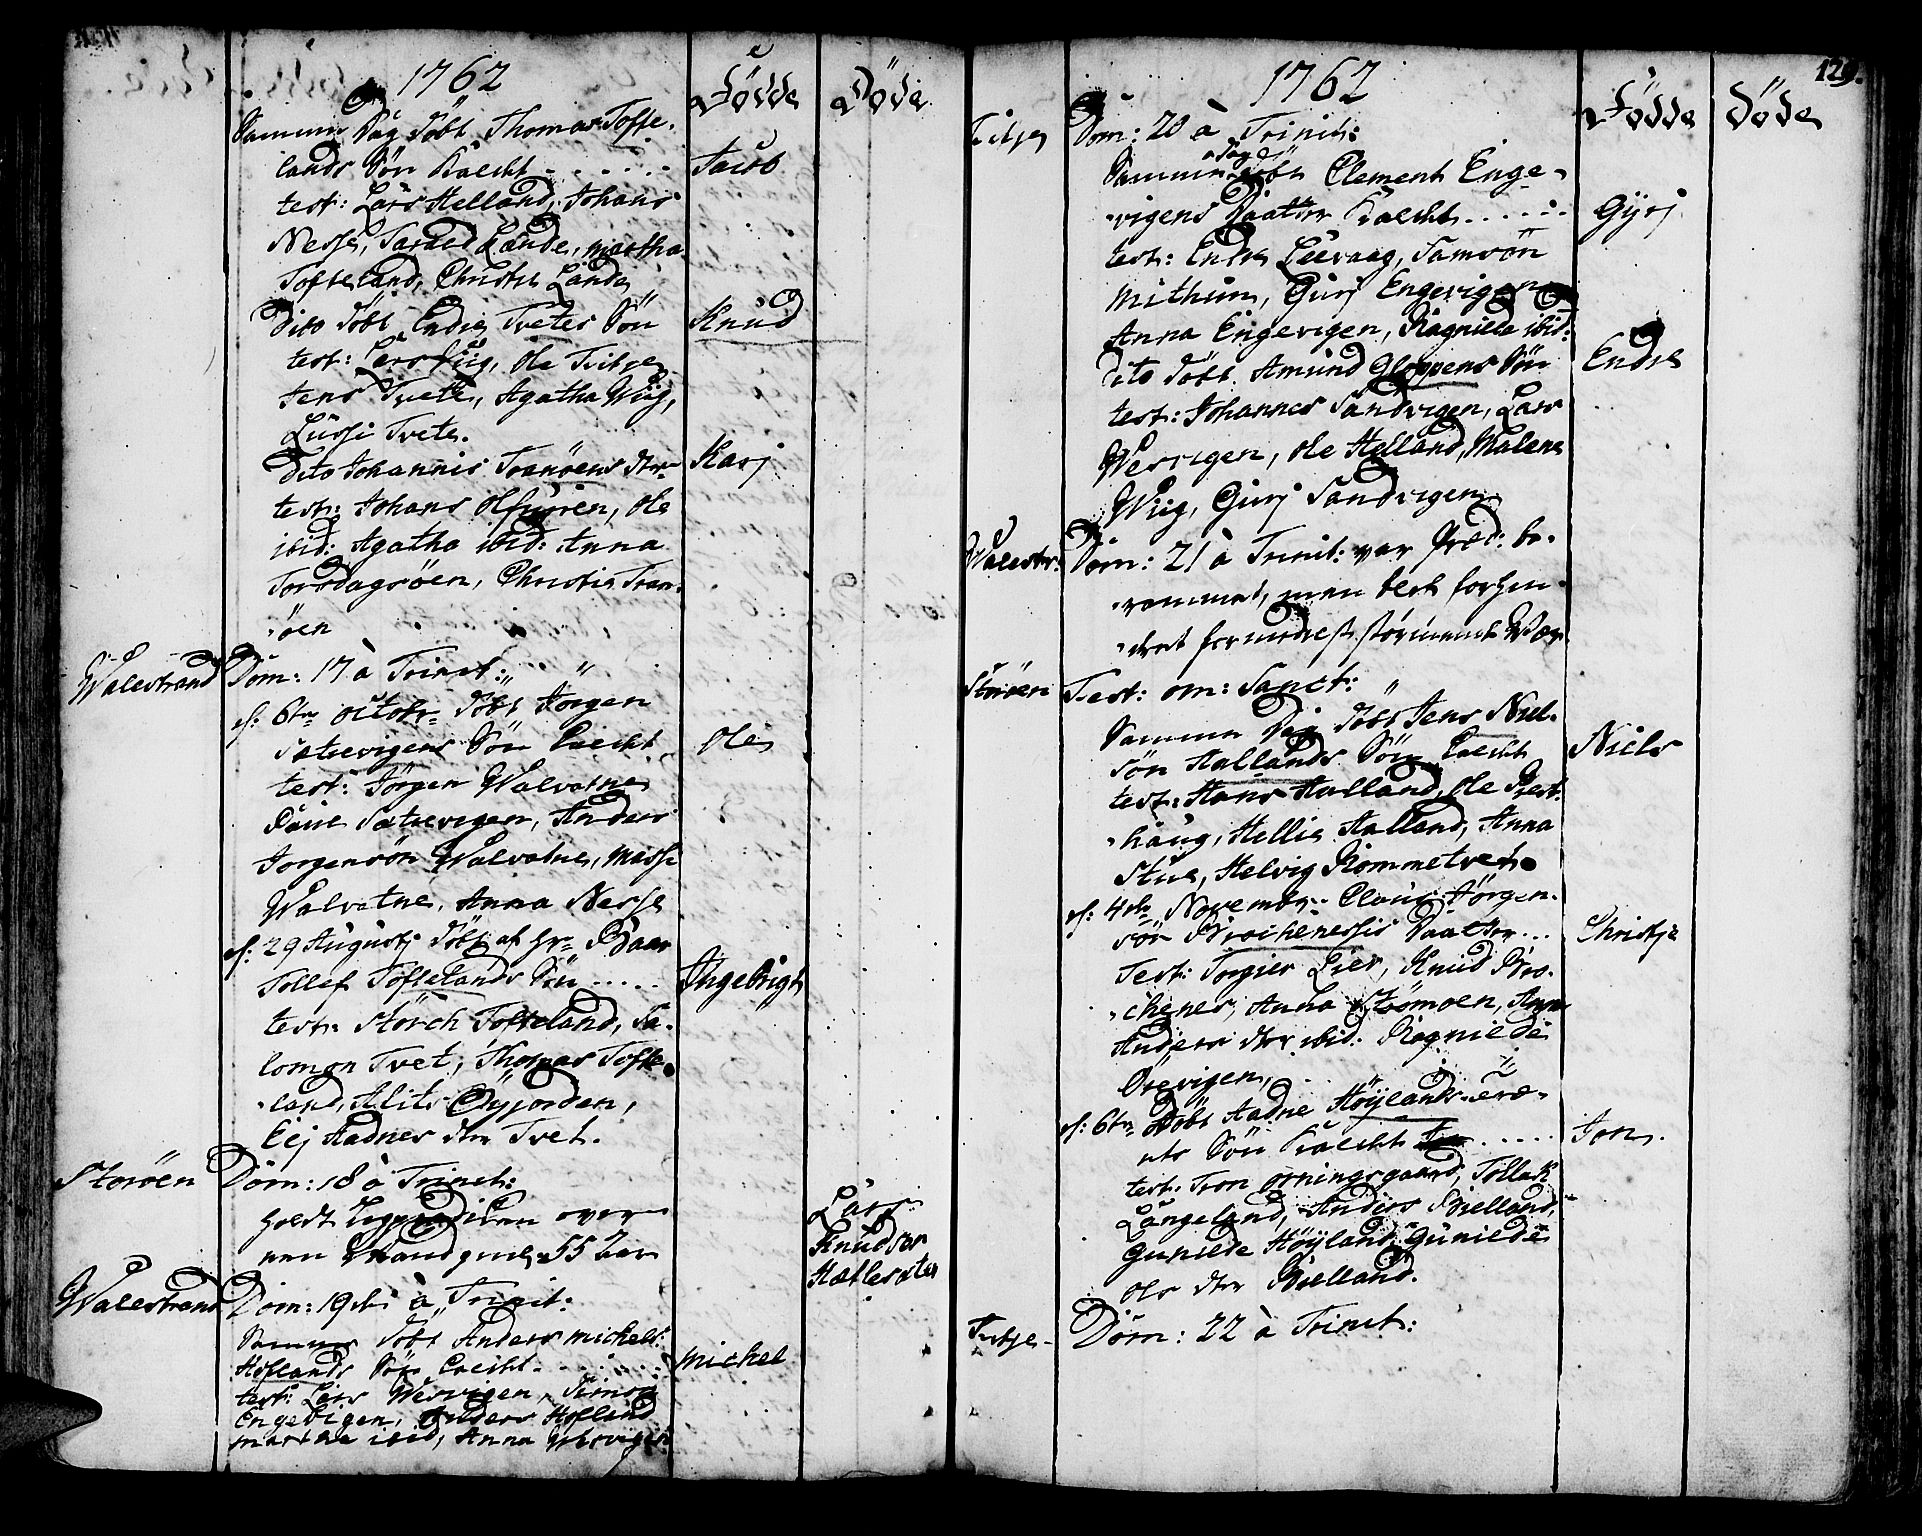 1762
Fødde
Døde
Samme Dag döbt Thomas Tofte-
lands Sön kaldt - - - - - -
Jacob
test: Lars Helland, Johans
Nesse, Lande, martha
Tofteland, Christi Lande
Dito döbt Endre Tvetes Sön
Knud
test: Lars Wiig, Ole Tvitje
Jens Tvete, Agatha Wiig,
Lussi Tvete.
Dito Johannis Tranöens dtr
Karj
test: Johans Ole
ibid: Agatha ibid: Anna
Torsdagsöen, Christie Tran-
öen
Walestrand
Dom: 17 à Trinit:
d: 6te octobr döbt Jörgen
Satrevigens Sön kaldt
Ole
test: Jörgen Walvatne
Satrevigen, Anders
Jörgensön Walvatne, Massi
Walvatne, Anna Nesse
d: 29 Augustj döbt af Hr
Tollef Toftelands Sön .....
Ingebrigt
test: Störch Tofteland, Sa-
lomon Tvet, Thomas Tofte-
land, Alits Öyjorden,
Eli Aadnes dtr Tvet.
Storöen
Dom: 18 à Trinit:
holdt over
Lars
een Mand gml: 55 Aar
Knudsen
Hætlesæter
Walestrand
Dom: 19de à Trinit:
Samme döbt Anders michels:
Höflands Sön kaldt - - - - - -
michel
test: Lars Wervigen, Simon
Engevigen, Anders Höfland
martha ibid, Anna Wervigen
129.
1762
Fødde
Døde
Fitje
Dom: 20 à Trinit:
Samme Dag döbt Clement Enge-
vigens Daatter kaldt ......
Gjrj
test: Endre Leervaag, Samsön
Mithun, Gurj Engevigen
Anna Engevigen, Ragnilde ibid:
dito döbt Amund Gloppens Sön
Endre
test: Johannes Sandvigen, Lars
Wervigen, Ole Helland, Malene
Wiig, Gurj Sandvigen
Walestr:
Dom: 21 à Trinit: var Præd: be-
rammet, men blev forhin-
dret formedelst stormende Wær
Storöen
Fest: om: Sanct:
Samme Dag döbt Jens Niel-
sön Hallands Sön kaldt
Niels
test: Hans Halland, Ole Prest-
haug, Hellie Halland, Anna
Stue, Helvig Rommetvet.
d: 4de Novembr: Claus Jörgen-
sön Brochenessis Daatter ...
Christje
Test: Torgier Lier, Knud Bro-
chenes, Anna Strömöen, Anna
Anders dtr ibid. Ragnilde
Örevigen,
d: 6te döbt Aadne Höylands
Sön kaldt .....
Jon.
test: Tron Horningsgaard, Tollak
Langeland, Anders Bielland,
Gunilde Höyland, Gunilde
Ols dtr Bielland.
Fitje
Dom: 22 à Trinit: